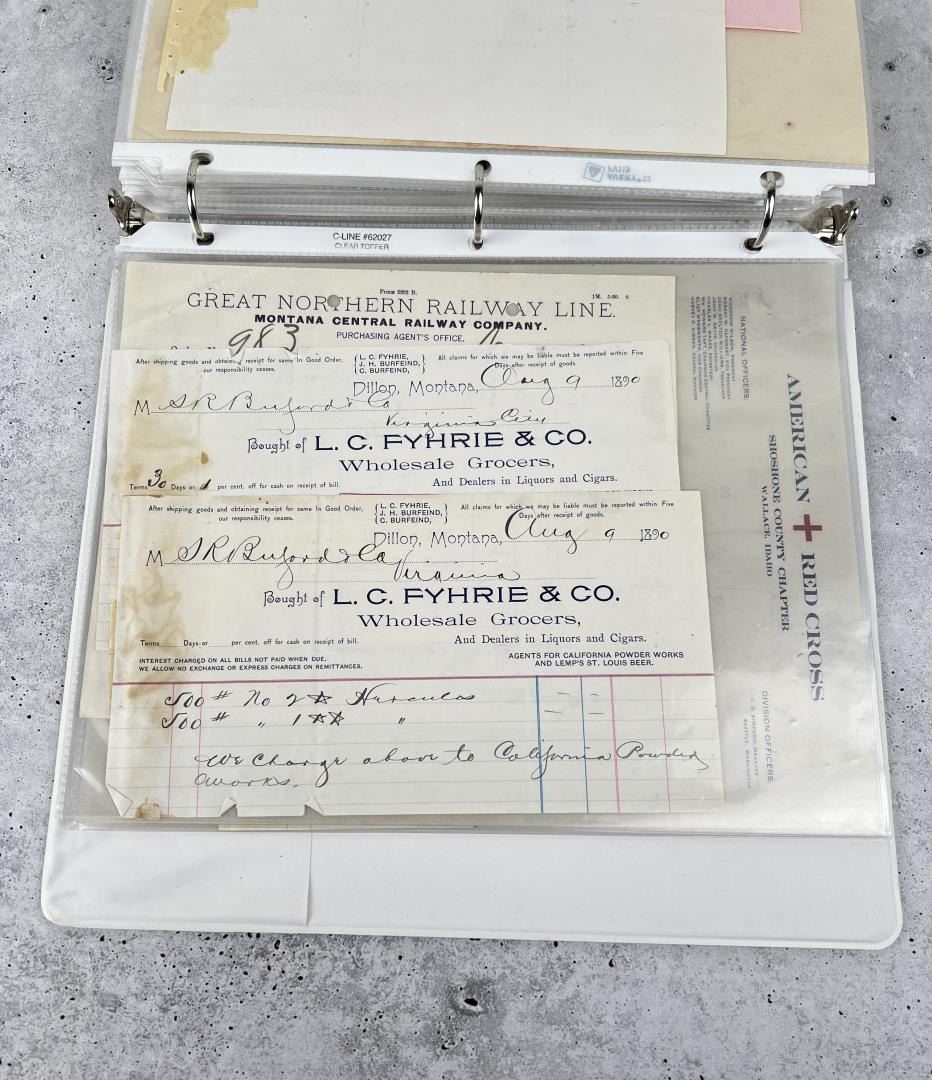 AVERY
PV119
C-LINE #62027
CLEAR TOPPER
Form 2202 B.
1M. 5-90. S
GREAT NORTHERN RAILWAY LINE.
MONTANA CENTRAL RAILWAY COMPANY.
PURCHASING AGENT'S OFFICE.
983
After shipping goods and obtaining receipt for same In Good Order,
our responsibility ceases.
L. C. FYHRIE,
J. H. BURFEIND,
C. BURFEIND,
All claims for which we may be liable must be reported within Five
Days after receipt of goods.
Dillon, Montana, Aug 9 1890
M S R Buford & Co
Virginia City
Bought of L. C. FYHRIE & CO.
Wholesale Grocers,
And Dealers in Liquors and Cigars.
Terms 30 Days or 1 per cent. off for cash on receipt of bill.
After shipping goods and obtaining receipt for same In Good Order,
our responsibility ceases.
L. C. FYHRIE,
J. H. BURFEIND,
C. BURFEIND,
All claims for which we may be liable must be reported within Five
Days after receipt of goods.
Dillon, Montana, Aug 9 1890
M S R Buford & Co
Virginia
Bought of L. C. FYHRIE & CO.
Wholesale Grocers,
And Dealers in Liquors and Cigars.
Terms Days or per cent. off for cash on receipt of bill.
INTEREST CHARGED ON ALL BILLS NOT PAID WHEN DUE.
WE ALLOW NO EXCHANGE OR EXPRESS CHARGES ON REMITTANCES.
AGENTS FOR CALIFORNIA POWDER WORKS
AND LEMP'S ST. LOUIS BEER.
500 # No 2☆ Hercules
500 # " 1☆☆ "
We charge above to California Powder
Works.
AMERICAN + RED CROSS
SHOSHONE COUNTY CHAPTER
WALLACE, IDAHO
NATIONAL OFFICERS:
WOODROW WILSON, PRESIDENT
ROBERT W. DE FOREST, VICE PRESIDENT
JOHN SKELTON WILLIAMS, TREASURER
JOHN W. DAVIS, COUNSELOR
CHARLES L. MAGEE, SECRETARY
WM. HOWARD TAFT, CHAIRMAN CENTRAL COMMITTEE
ELIOT WADSWORTH, VICE CHAIRMAN
HARVEY D. GIBSON, GENERAL MANAGER
DIVISION OFFICERS:
C. D. STIMSON, MANAGER
SEATTLE, WASHINGTON